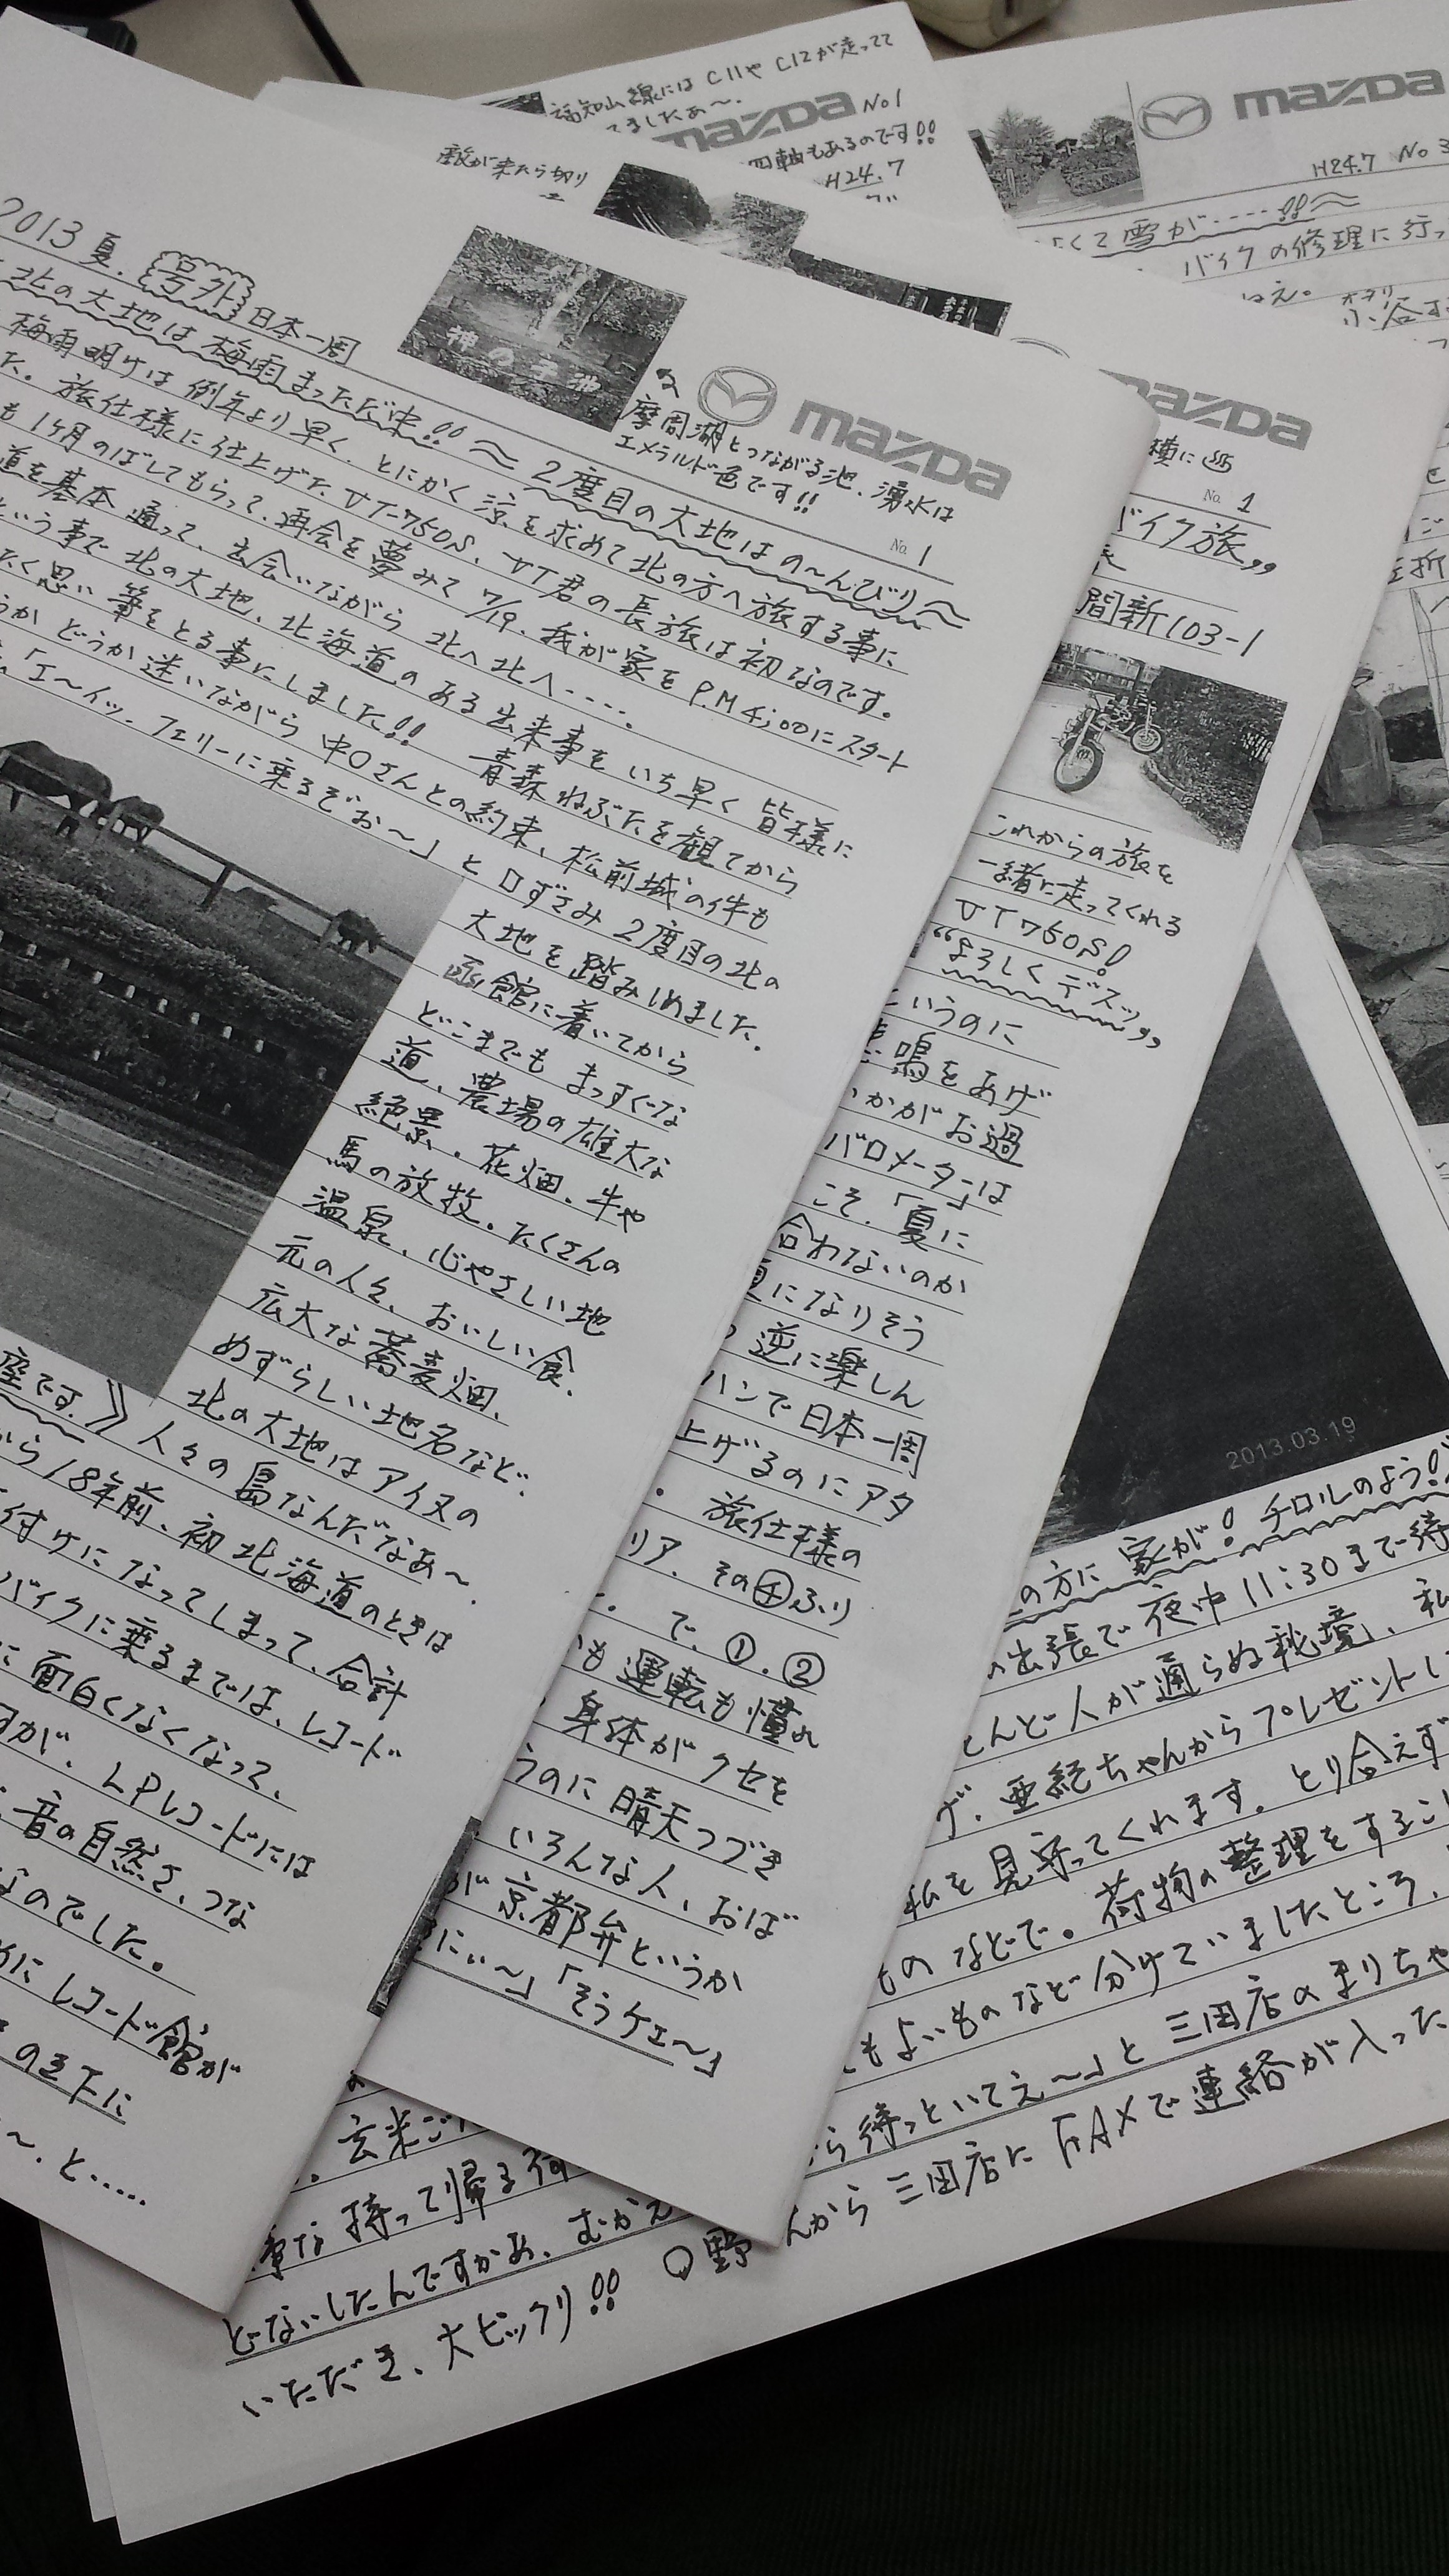 福知山線には C11や C12が走って
てましたぁ〜.
mazda No1
四軸もあるのです!!
H24.7
敵が来たら切り
mazda
H24.7 No 3
くて雪が・・・・!!〜
バイクの修理に行っ
ねえ。
2013 夏. 号外 日本一周
神の子池
摩周湖とつながる池、湧水は
エメラルド色です!!
mazda
No. 1
北の大地は梅雨まっただ中!!〜2度目の大地はの〜んびり〜
梅雨明けは例年より早く、とにかく涼を求めて北の方へ旅する事に
た。旅仕様に仕上げたVT-750S、VT君の長旅は初なのです。
も1ヶ月のばしてもらって、再会を夢みて7/19、我が家をP.M4:00にスタート
道を基本通って、出会いながら北へ北へ・・・・.
という事で北の大地、北海道のある出来事をいち早く皆様に
たく思い筆をとる事にしました!! 青森ねぶたを観てから
うかどうか迷いながら中〇さんとの約束、松前城の件も
「エ〜イッ、フェリーに乗るぞぉ〜」と口ずさみ2度目の北の
大地を踏みしめました。
函館に着いてから
どこまでもまっすぐな
道、農場の雄大な
絶景、花畑、牛や
馬の放牧、たくさんの
温泉、心やさしい地
元の人々、おいしい食、
広大な蕎麦畑、
めずらしい地名など、
北の大地はアイヌの
座です。》人々の島なんだなあ〜.
から18年前、初北海道のときは
付けになってしまって、合計
バイクに乗るまでは、レコード
に面白くなくなって、
何が、LPレコードには
音の自然さ、つな
なのでした。
めにレコード館が
の玉下に
〜.と.....
mazda
横に
No. 1
バイク旅”
間新103-1
これからの旅を
一緒に走ってくれる
VT750S!
“よろしくデスッ”
というのに
悲鳴をあげ
いかがお過
バロメーター」は
こそ.「夏に
合わないのか
夏になりそう
逆に楽しん
ハンで日本一周
上げるのにアタ
。旅仕様の
リア、その④ふり
で、①.②
も運転も憧れ
身体がクセを
うのに晴天つづき
いろんな人、おば
が京都弁というか
にぃ〜」「そうケェ〜」
2013.03.19
の方に家が! チロルのよう!!
の出張で夜中11:30まで待
とんど人が通らぬ秘境、私
亜紀ちゃんからプレゼントし
私を見守ってくれます。とり合えず
ものなどで。荷物の整理をするこ
もよいものなど分けていましたところ、
ら待っといてえ〜」と三田店のまりちゃ
んから三田店にFAXで連絡が入った
玄米ご
重な持って帰る荷
どないしたんですかぁ、むかえ
いただき、大ビックリ!! 〇野